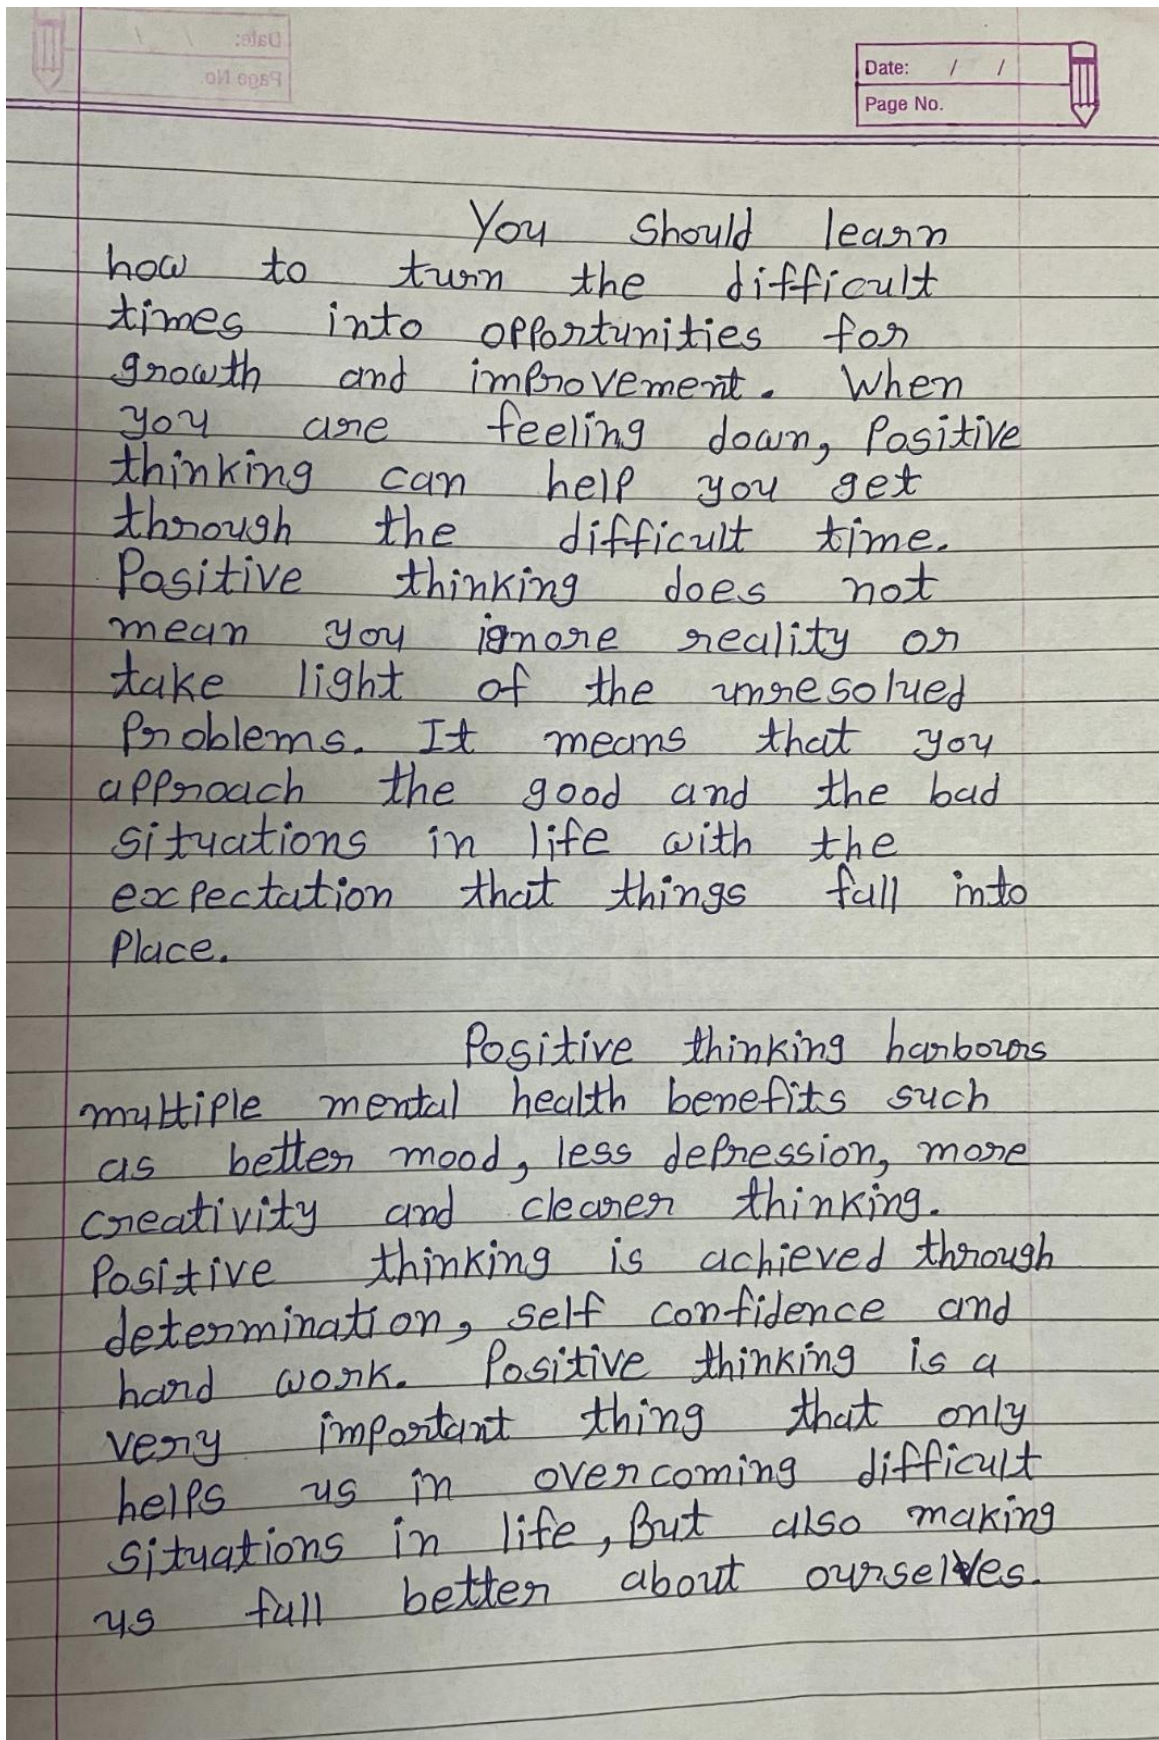 Date: / /
Page No.
You should learn
how to turn the difficult
times into opportunities for
growth and improvement. When
you are feeling down, Positive
thinking can help you get
through the difficult time.
Positive thinking does not
mean you ignore reality or
take light of the unresolued
Problems. It means that you
approach the good and the bad
situations in life with the
expectation that things fall into
Place.
Positive thinking harbours
multiple mental health benefits such
as better mood, less depression, more
creativity and clearer thinking.
Positive thinking is achieved through
determination, self confidence and
hard work. Positive thinking is a
very important thing that only
helps us in overcoming difficult
situations in life, But also making
us fall better about ourselves.